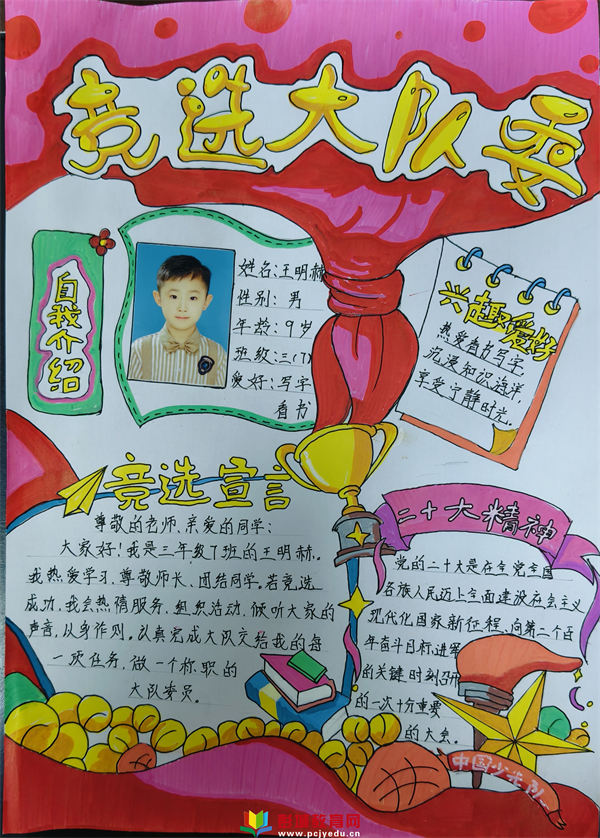 竞选大队委
自我介绍
姓名:王明赫
性别:男
年龄:9岁
班级:三(7)
爱好:写字
看书
兴趣爱好
热爱看书写字,
沉浸知识海洋,
享受宁静时光。
竞选宣言
尊敬的老师,亲爱的同学:
大家好!我是三年级7班的王明赫。
我热爱学习、尊敬师长、团结同学。若竞选
成功,我会热情服务、组织活动,倾听大家的
声音,以身作则。认真完成大队交给我的每
一项任务,做一个称职的
大队委员。
二十大精神
党的二十大是在全党全国
各族人民迈上全面建设社会主义
现代化国家新征程、向第二个百
年奋斗目标进军
的关键时刻召开
的一次十分重要
的大会。
中国少
教育网
www.pcjyedu.cn